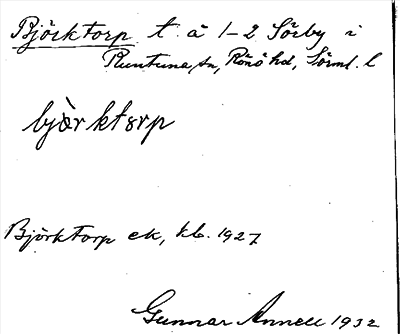 Björktorp t. å 1-2 Sörby i
Runtuna sn, Rönö hd, Sörml. l
bjòrktorp
Björktorp ek, kb. 1927
Gunnar Annell 1932